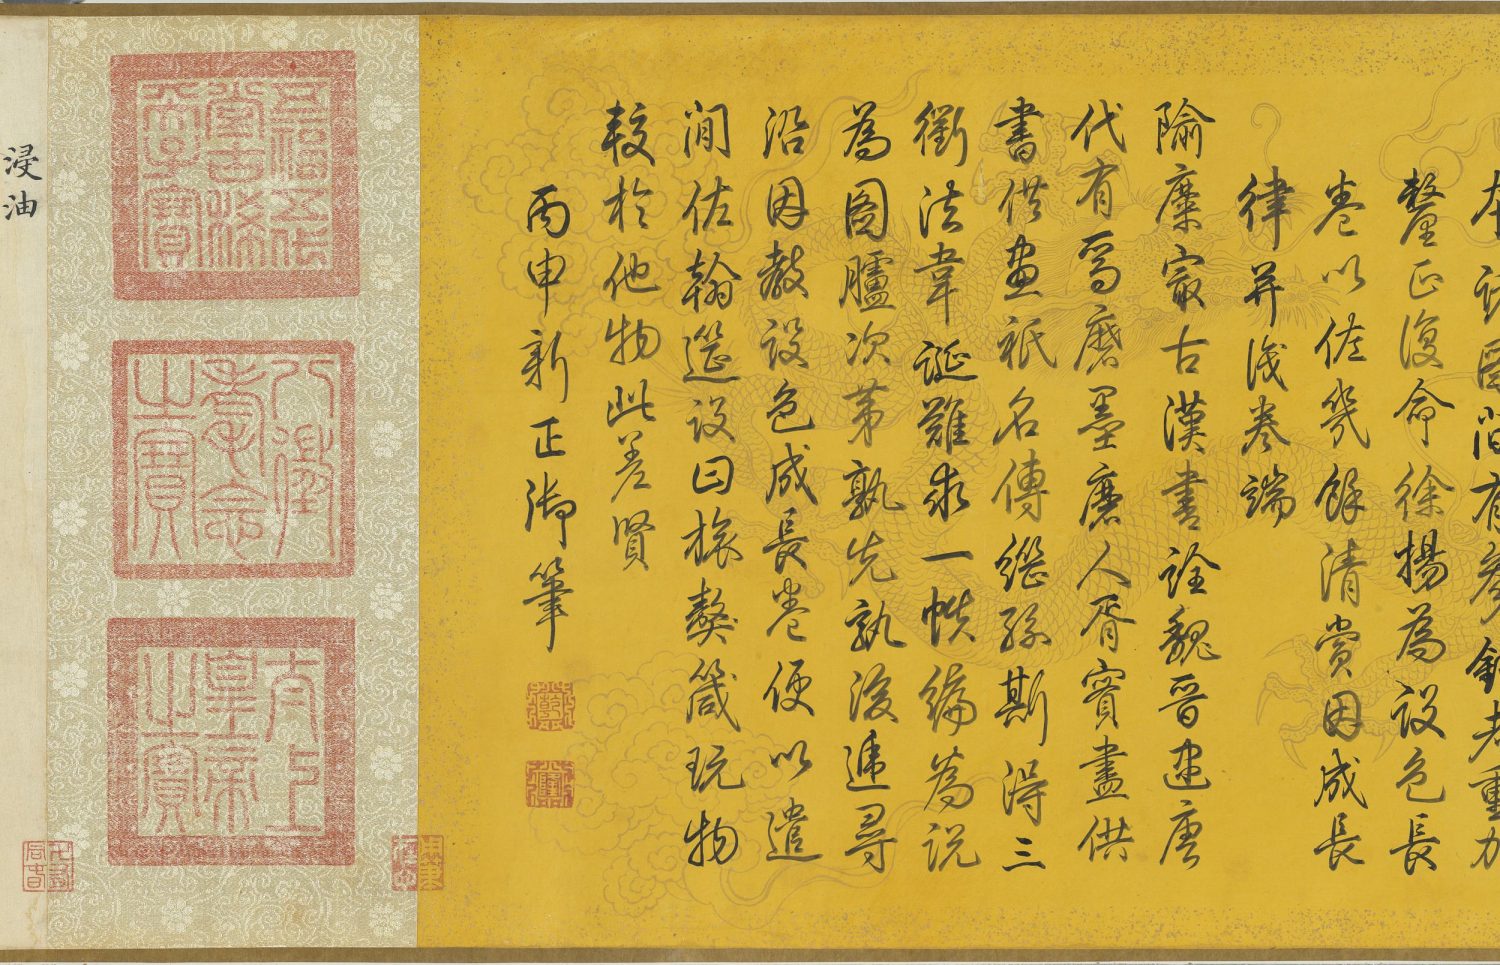 本
圖
有
者重加
釐正復命徐揚為設色長
卷以佐幾餘清賞因成長
律并識卷端
隃麋最古漢書詮魏晉逮唐
代有焉磨墨磨人胥實盡供
書供畫祇名傳繼孫斯得三
衢法韋誕難求一帙編為說
為圖臚次第孰先孰後遞尋
沿因教設色成長卷便以遣
閒佐翰筵設曰旅獒箴玩物
較於他物此差賢
丙申新正御筆
五福五代
堂古稀
天子寶
八徵
耄念
之寶
太上
皇帝
之寶
浸油